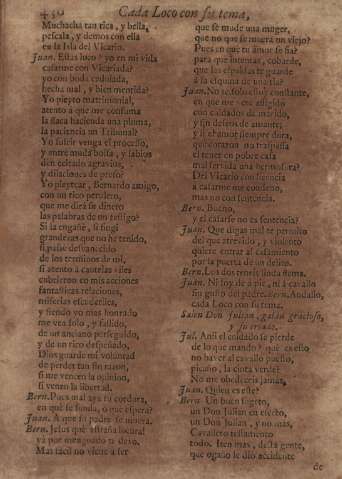 450 Cada Loco con su tema,
Muchacha tan rica, y bella,
pescala, y demos con ella
en la Isla del Vicario.
Juan. Estas loco? yo en mi vida
casarme con Vicariada?
yo con boda cedulada,
hecha mal, y bien mentida?
Yo pleyto matrimonial,
atento à que me consuma
la flaca hacienda una pluma,
la paciencia un Tribunal?
Yo sufrir venga el processo,
y entre muda bolsa, y labios
den celeado agravios,
y dilaciones de preso?
Yo pleytear, Bernardo amigo,
con un rico perulero,
que me dirà su dinero
las palabras de un testigo?
Si la engañè, si fingì
grandezas que no he tenido,
si passè desvanecido
de los terminos de mi,
si atento à cautelas viles
cubrieron en mis acciones
fantasticas relaciones,
miserias escuderiles,
y siendo yo mas honrado
me vea solo, y fallido,
de un anciano perseguido,
y de un rico despreciado.
Dios guarde mi voluntad
de perder tan sin razon,
si me vencen la opinion,
si venzo la libertad.
Bern. Pues mal aya tu cordura,
en què se funda, o que espera?
Juan. A que su padre se muera.
Bern. Jesus què estraña locura!
yà por menguado te dexo.
Mas facil no viene à ser
que se mude una muger,
que no que se muera un viejo?
Pues en què tu amor se fia?
para què intentas, cobarde,
que las espaldas te guarde
à la esquina de una tia?
Juan. No se, solo estoy constante,
en que me veo afligido
con cuidados de marido,
y sin deseos de amante;
y si el amor siempre dura,
que corazon no traspassa
el tener en pobre casa
mal servida una hermosura?
Del Vicario con licencia
à casarme me condeno,
mas no con sentencia.
Bern. Bueno,
y el casarse no es sentencia?
Juan. Que digas mal te permito
del que atrevido, y violento
quiere entrar al casamiento
por la puerta de un delito.
Bern. Los dos teneis linda flema.
Juan. Ni loy de à pie, ni à cavallo
sin gusto del padre. Bern. Andallo,
cada Loco con su tema.
Salen Don Julian, galan gracioso,
y su criado.
Jul. Assi el cuidado se pierde
de lo que mando? què es esso
no haver al cavallo puesto,
picaño, la cinta verde?
No me obedeceis jamàs.
Juan. Quien es este?
Bern. Un buen sugeto,
un Don Julian en efecto,
un Don Julian, y no mas,
Cavallero testamento
todo. Iten mas, desta gente,
que ogaño le diò accidente
de